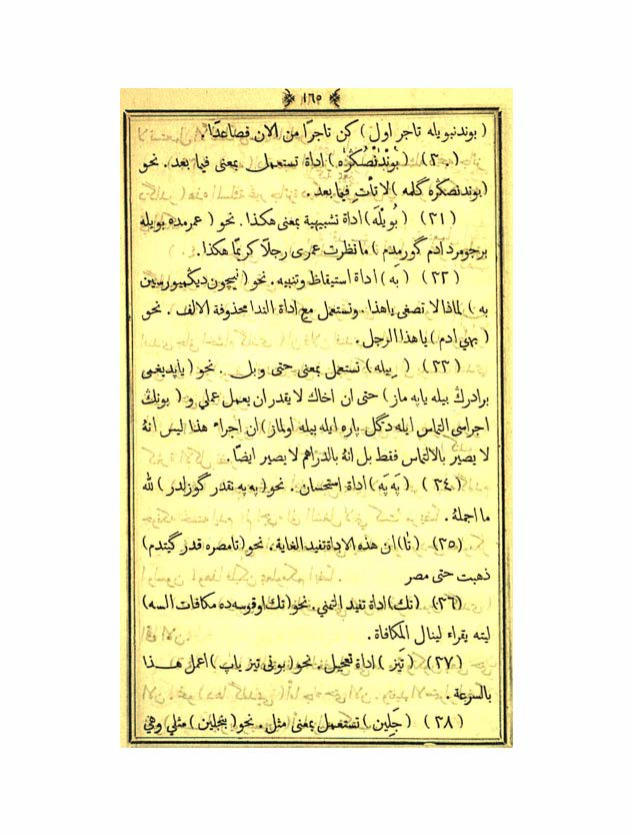 ١٦٥
( بوندنبويله تاجر اول ) كن تاجرًا من الان فصاعدًا
(٢٠) (بُونْدَنْصُكْرَه) اداة تستعمل بمعنى فيما بعد. نحو
(بوندنصكره گلمه )لا تأتِ فيما بعد .
(٢١) ( بُويْلَه) اداة تشبيهية بمعنى هكذا . نحو ( عمرمده بويله
برجومرد ادم گورمدم ) ما نظرت عمرى رجلاً كريمًا هكذا .
(٢٢) ( بَه ) اداة استيقاظ وتنبيه . نحو ( نيچون ديكلميورسين
به ) لماذا لا تصغى ياهذا . وتستعمل مع اداة الندا محذوفة الالف . نحو
( بهى ادم ) يا هذا الرجل .
(٢٣) ( بيله ) تستعمل بمعنى حتى وبل . نحو ( ياپديغمى
برادرڭ بيله ياپه ماز ) حتى ان اخاك لا يقدر ان يعمل عملي و ( بونڭ
اجراسى التماس ايله دگل پاره ايله بيله اولماز ) ان اجراء هذا ليس انهُ
لا يصير بالالتماس فقط بل انهُ بالدراهم لا يصير ايضًا .
(٢٤) ( پَه پَه ) اداة استحسان . نحو ( په په نقدر گوزلدر ) لله
ما اجملهُ .
(٢٥) (تَا) ان هذه الاداة تفيد الغاية . نحو (تا مصره قدر گيتدم)
ذهبت حتى مصر
(٢٦) (تك) اداة تفيد التمني. نحو (تك اوقوسه ده مكافات السه)
ليته يقراء لينال المكافاة .
(٢٧) ( تيز ) اداة تعجيل . نحو ( بونى تيز ياپ ) اعمل هـــذا
بالسرعة .
(٢٨) ( جَلِين ) تستعمل بمعنى مثل . نحو ( بنجلين ) مثلي وهي